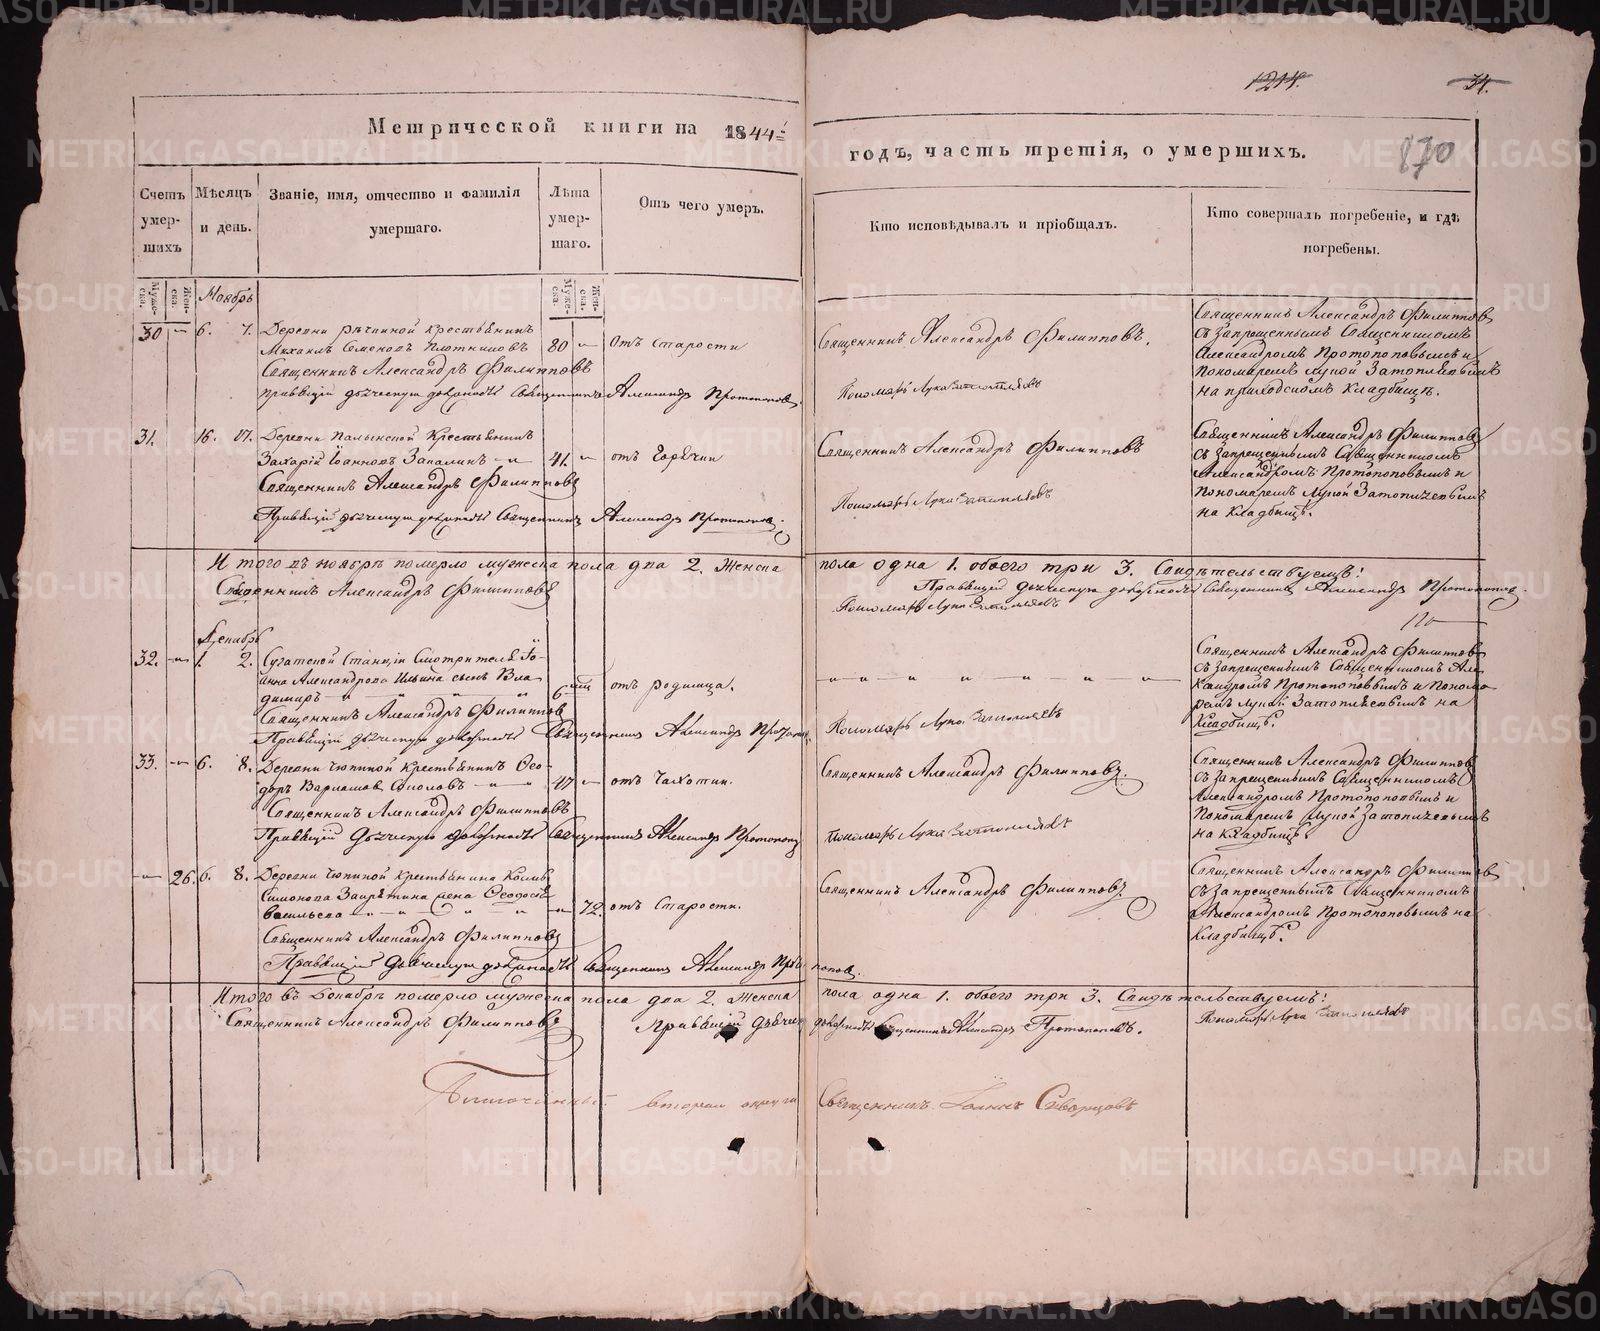 1214.
34.
870
Метрической книги на 1844й
годъ, часть третія, о умершихъ.
Счетъ умерших
Мѣсяцъ и день.
Званіе, имя, отчество и фамилія умершаго.
Лѣта умершаго.
Отъ чего умеръ.
Кто исповѣдывалъ и пріобщалъ.
Кто совершалъ погребеніе, и гдѣ погребены.
Мужеска.
Женска.
Мужеска.
Женска.
Ноябрь
30 — 6. 7.
Деревни крестьянинъ
Михаилъ Семеновъ Плотниковъ
80 —
Отъ старости
Священникъ Александръ Филипповъ
Правящій дьяческую должность Священникъ Александръ Протопоповъ
Священникъ Александръ Филипповъ.
Пономарь Лука
Священникъ Александръ Филипповъ
съ запрещеннымъ Священникомъ
Александромъ Протопоповымъ и
пономаремъ Лукой
на приходскомъ кладбищѣ.
31. 16. 17.
Деревни крестьянинъ
Захарій Іоанновъ
41. —
отъ горячки
Священникъ Александръ Филипповъ
Правящій дьяческую должность Священникъ Александръ Протопоповъ.
Священникъ Александръ Филипповъ
Пономарь Лука
Священникъ Александръ Филипповъ
съ запрещеннымъ Священникомъ
Александромъ Протопоповымъ и
пономаремъ Лукой
на кладбищѣ.
Итого въ ноябрѣ померло мужеска пола два 2. женска пола одна 1. обоего три 3. Свидѣтельствуемъ:
Священникъ Александръ Филипповъ
Правящій дьяческую должность Священникъ Александръ Протопоповъ.
Пономарь Лука
Декабрь
32. — 1. 2.
Станціи Смотрителя Іо-
анна Александрова Ильина сынъ Вла-
димиръ
6 мц
отъ родимца.
Священникъ Александръ Филипповъ
Правящій дьяческую должность Священникъ Александръ
Пономарь Лука
Священникъ Александръ Филипповъ
съ запрещеннымъ Священникомъ Але-
ксандромъ Протопоповымъ и Понома-
ремъ Лукой на
кладбищѣ.
33. — 6. 8.
Деревни крестьянинъ Ѳео-
доръ Варламовъ Соколовъ
47 —
отъ чахотки.
Священникъ Александръ Филипповъ
Правящій дьяческую должность Священникъ Александръ Протопоповъ
Священникъ Александръ Филипповъ.
Пономарь Лука
Священникъ Александръ Филипповъ
съ запрещеннымъ Священникомъ
Александромъ Протопоповымъ и
Пономаремъ Лукой
на кладбищѣ.
— 26. 6. 8.
Деревни крестьянина
Симонова жена Ѳеодосья
Васильева
— 72.
отъ старости.
Священникъ Александръ Филипповъ
Правящій дьяческую должность Священникъ Александръ Протопоповъ.
Священникъ Александръ Филипповъ.
Священникъ Александръ Филипповъ
съ запрещеннымъ Священникомъ
Александромъ Протопоповымъ на
кладбищѣ.
Итого въ Декабрѣ померло мужеска пола два 2. женска пола одна 1. обоего три 3. Свидѣтельствуемъ:
Священникъ Александръ Филипповъ
Правящій дьяческую должность Священникъ Александръ Протопоповъ.
Пономарь Лука
Благочинный втораго округа Священникъ Іоаннъ Скворцовъ
METRIKI.GASO-URAL.RU